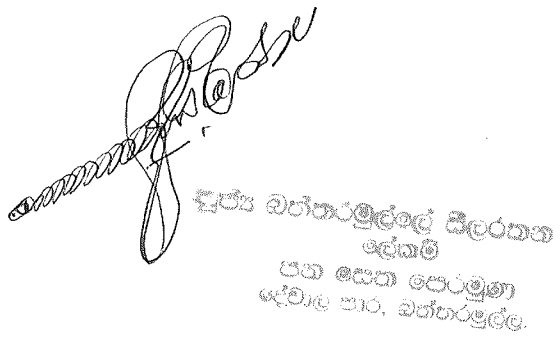 පූජ්‍ය බත්තරමුල්ලේ සීලරතන
ලේකම්
ජන සෙත පෙරමුණ
දේවාල පාර, බත්තරමුල්ල.